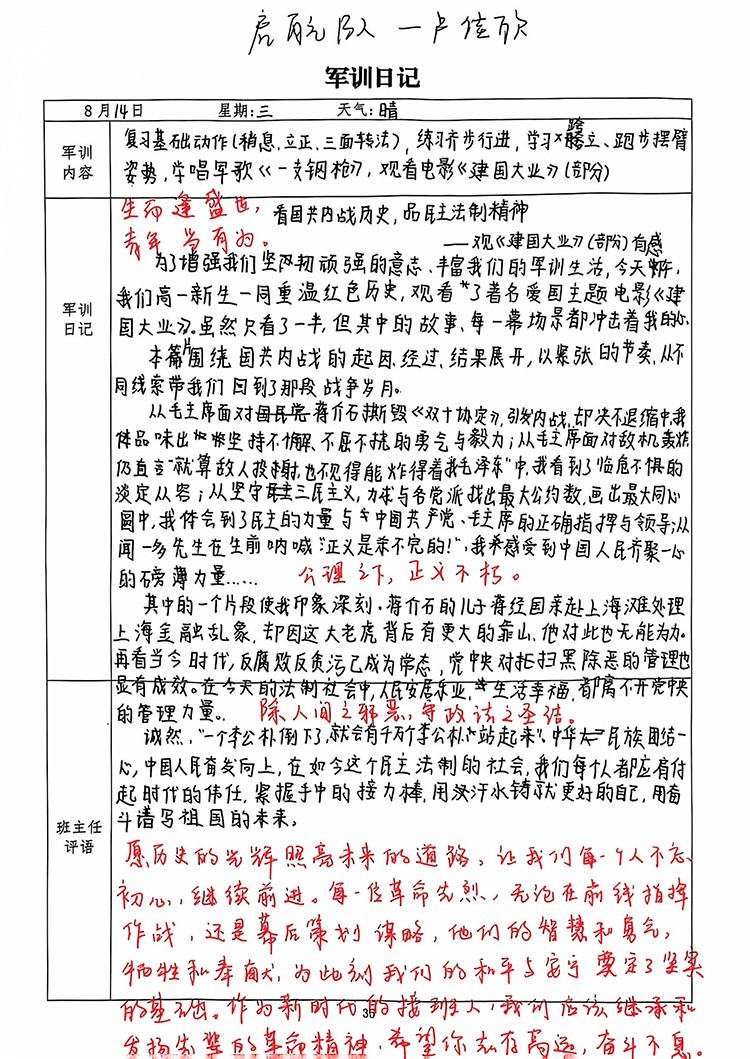 启航队 — 卢佳欣
军训日记
8月14日 星期:三 天气:晴
军训
内容
复习基础动作(稍息、立正、三面转法),练习齐步行进,学习跨立、跑步摆臂
姿势,学唱军歌《一支钢枪》,观看电影《建国大业》(部分)
生而逢盛世,
青年当有为。
看国共内战历史,品民主法制精神
——观《建国大业》(部分)有感
军训
日记
为了增强我们坚韧顽强的意志、丰富我们的军训生活,今天
我们高一新生一同重温红色历史,观看了著名爱国主题电影《建
国大业》。虽然只看了一半,但其中的故事、每一幕场景都冲击着我的心
本片围绕国共内战的起因、经过、结果展开,以紧张的节奏,从不
同线索带我们回到了那段战争岁月。
从毛主席面对蒋介石撕毁《双十协定》,引发内战,却决不退缩中,我
体品味出坚持不懈、不屈不挠的勇气与毅力;从毛主席面对敌机轰炸
仍直言"就算敌人投掷,也不见得能炸得着我毛泽东"中,我看到了临危不惧的
淡定从容;从坚守三民主义,力求与各党派找出最大公约数,画出最大同心
圆中,我体会到了民主的力量与中国共产党、毛主席的正确指挥与领导;从
闻一多先生在生前呐喊"正义是杀不完的!",我感受到中国人民齐聚一心
的磅礴力量…… 公理之下,正义不朽。
其中的一个片段使我印象深刻。蒋介石的儿子蒋经国来赴上海滩处理
上海金融乱象,却因这大老虎背后有更大的靠山,他对此也无能为力。
再看当今时代,反腐败反贪污已成为常态,党中央对扫黑除恶的管理也
显有成效。在今天的法制社会中,人民安居乐业,生活幸福,都离不开党中央
的管理力量。 除人间之邪恶,守政法之圣洁。
诚然,"一个李公朴倒下了,就会有千万个李公朴站起来",中华民族团结一
心,中国人民奋发向上,在如今这个民主法制的社会,我们每个人都应有付
起时代的伟任,紧握手中的接力棒,用汗水铸就更好的自己,用奋
斗谱写祖国的未来。
班主任
评语
愿历史的光辉照亮未来的道路,让我们每一个人不忘
初心,继续前进。每一位革命先烈,无论在前线指挥
作战,还是幕后策划谋略,他们的智慧和勇气,
牺牲和奉献,为此刻我们的和平与安宁奠定了坚实
的基础。作为新时代的接班人,我们应该继承和
发扬先辈的革命精神,希望你志存高远,奋斗不息。